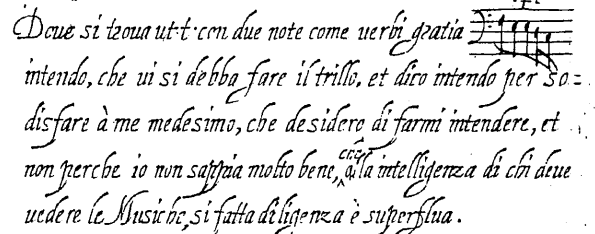 Doue si troua ut·t·con due note come uerbi gratia
intendo, che ui si debba fare il trillo, et dico intendo per so=
disfare à me medesimo, che desidero di farmi intendere, et
non perche io non sappia molto bene, che à la intelligenza di chi deue
uedere le Musiche, si fatta diligenza è superflua.